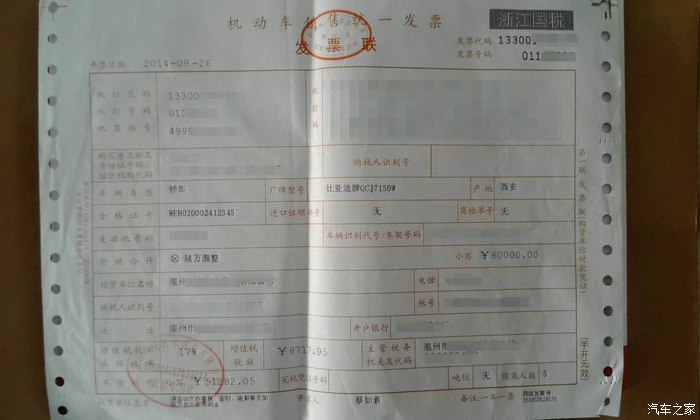 机动车销售统一发票
浙江国税
发票联
发票代码 13300
发票号码 011
开票日期 2014-09-26
机打代码 13300
机打号码 011
机器编号 4999
税控码
购买方名称及身份证号码/组织机构代码 纳税人识别号
车辆类型 轿车 厂牌型号 比亚迪牌QCJ7150W 产地 西安
合格证号 WER020002412345 进口证明书号 无 商检单号 无
发动机号码 车辆识别代号/车架号码
价税合计 ⊗ 陆万圆整 小写 ￥60000.00
销货单位名称 温州 电话
纳税人识别号 账号
地址 温州市 开户银行
增值税税率或征收率 17% 增值税税额 ￥8717.95 主管税务机关及代码 温州市
不含税价 小写 ￥51282.05 完税凭证号码 吨位 无 限乘人数 5
销货单位盖章 开票人 蔡如意 备注:一车一票
第一联 发票联(购货单位付款凭证)
(手开无效)
汽车之家